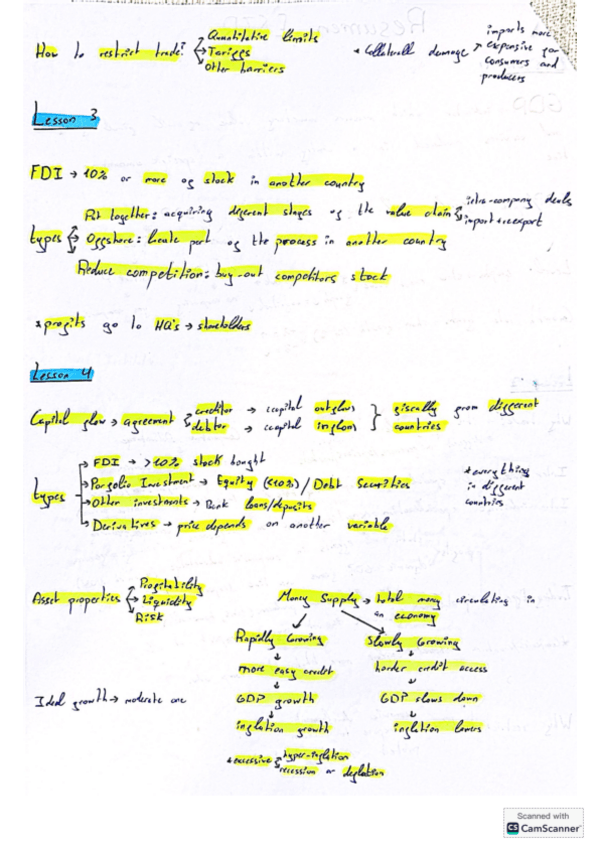 How to restrict trade?
Quantitative limits
Tariffs
Other barriers
* Collateral damage → imports more expensive for consumers and producers
Lesson 3
FDI → 10% or more of stock in another country
types
Put together: acquiring diferent stages of the value chain
intra-company deals
import & export
Offshore: locate part of the process in another country
Reduce competition: buy-out competitors stock
* profits go to HQ's → shareholders
Lesson 4
Capital flow → agreement
creditor → capital outflow
debter → capital inflow
fiscally from different countries
types
→ FDI → >10% stock bought
→ Porfolio Investment → Equity (≤10%) / Debt Securities
→ Other investments → Bank loans/deposits
→ Derivatives → price depends on another variable
* everything in different countries
Asset properties
Profitability
Liquidity
Risk
Money Supply → total money circulating in an economy
Rapidly Growing
more easy credit
GDP growth
inflation growth
Slowly Growing
harder credit access
GDP slows down
inflation lowers
Ideal growth → moderate one
* excessive
hyper-inflation
recession or deflation
Scanned with
CS CamScanner